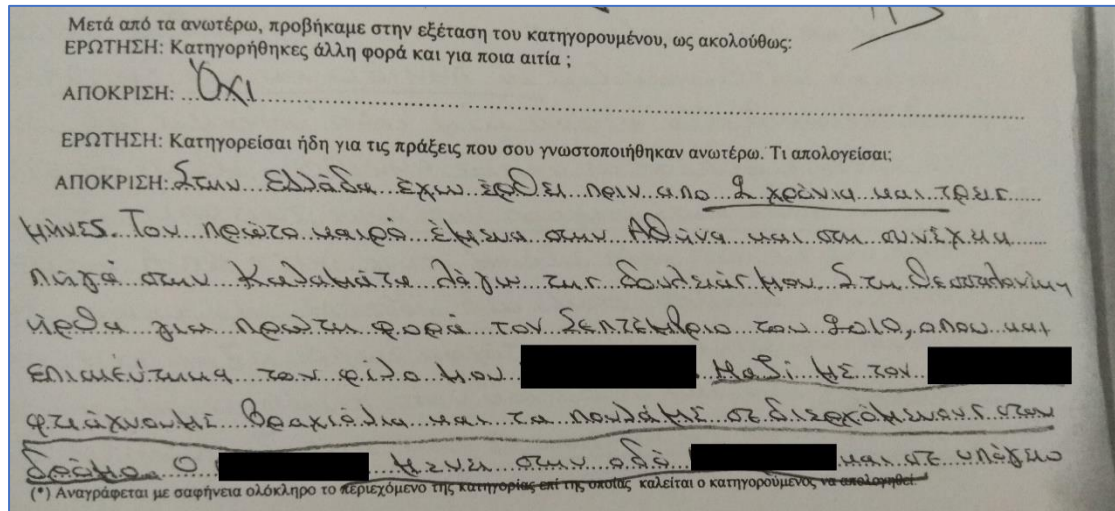 Μετά από τα ανωτέρω, προβήκαμε στην εξέταση του κατηγορουμένου, ως ακολούθως:
ΕΡΩΤΗΣΗ: Κατηγορήθηκες άλλη φορά και για ποια αιτία ;
ΑΠΟΚΡΙΣΗ: Όχι
ΕΡΩΤΗΣΗ: Κατηγορείσαι ήδη για τις πράξεις που σου γνωστοποιήθηκαν ανωτέρω. Τι απολογείσαι;
ΑΠΟΚΡΙΣΗ: Στην Ελλάδα έχω έρθει πριν απο 2 χρόνια και τρεις
μήνες. Τον πρώτο καιρό έμενα στην Αθήνα και στη συνέχεια
πήγα στην Καλαμάτα λόγω της δουλειάς μου. Στη Θεσσαλονίκη
ήρθα για πρώτη φορά τον Σεπτέμβριο του 2010, οπου και
επισκέύτηκα τον φίλο μου Μαζί με τον
φτιάχνουμε βραχιόλια και τα πουλάμε σε διερχόμενους στον
δρόμο. Ο μενει στην οδό και σε υπόγειο
(*) Αναγράφεται με σαφήνεια ολόκληρο το περιεχόμενο της κατηγορίας επί της οποίας καλείται ο κατηγορούμενος να απολογηθεί.